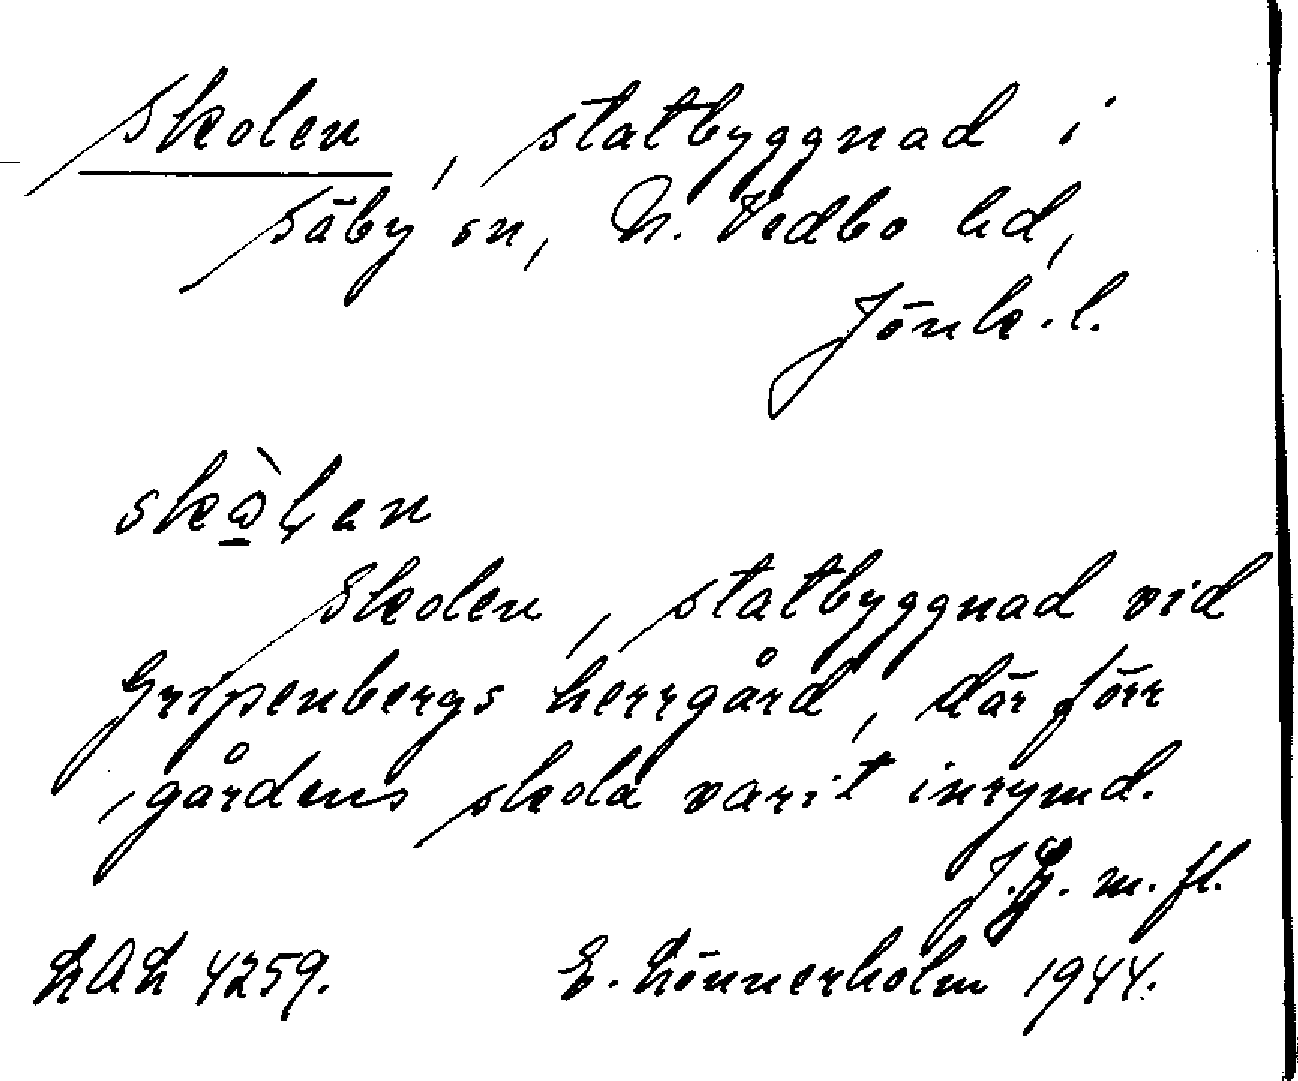 Skolen, statbyggnad i
Säby sn, N. Vedbo hd,
Jönk. l.
skò̠ḷen
Skolen, statbyggnad vid
Gripenbergs herrgård, där förr
gårdens skola varit inrymd.
m. fl.
LAL 4259. E. Lönnerholm 1944.